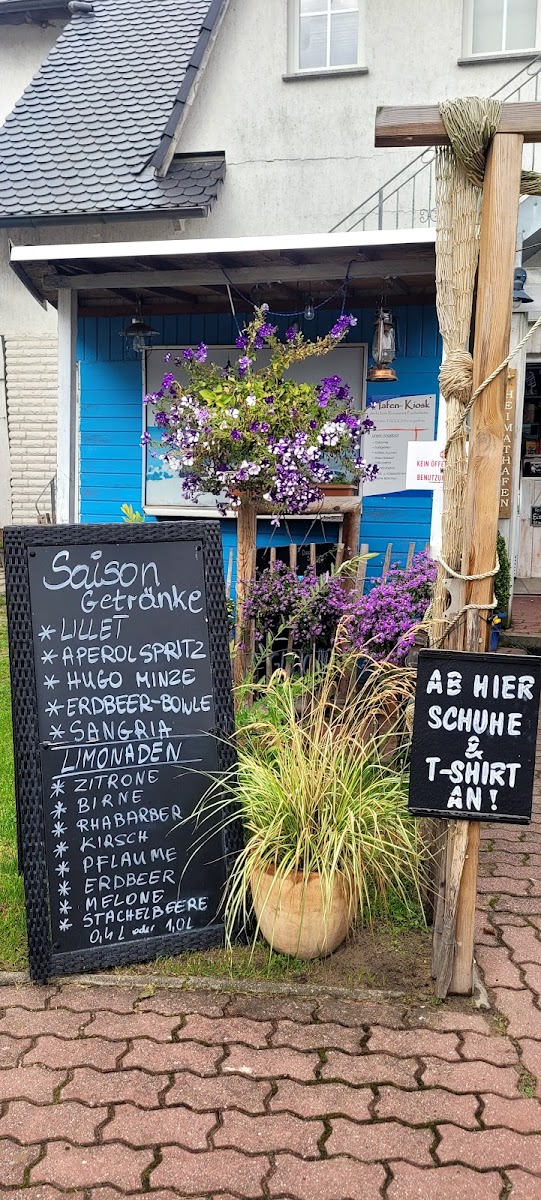 Saison
Getränke
* LILLET
* APEROL SPRITZ
* HUGO MINZE
* ERDBEER-BOWLE
* SANGRIA
LIMONADEN
* ZITRONE
* BIRNE
* RHABARBER
* KIRSCH
* PFLAUME
* ERDBEER
* MELONE
* STACHELBEERE
0,4 L oder 1,0 L
Hafen-Kiosk
KEIN ÖFF
BENUTZU
HEIMATHAFEN
AB HIER
SCHUHE
&
T-SHIRT
AN!